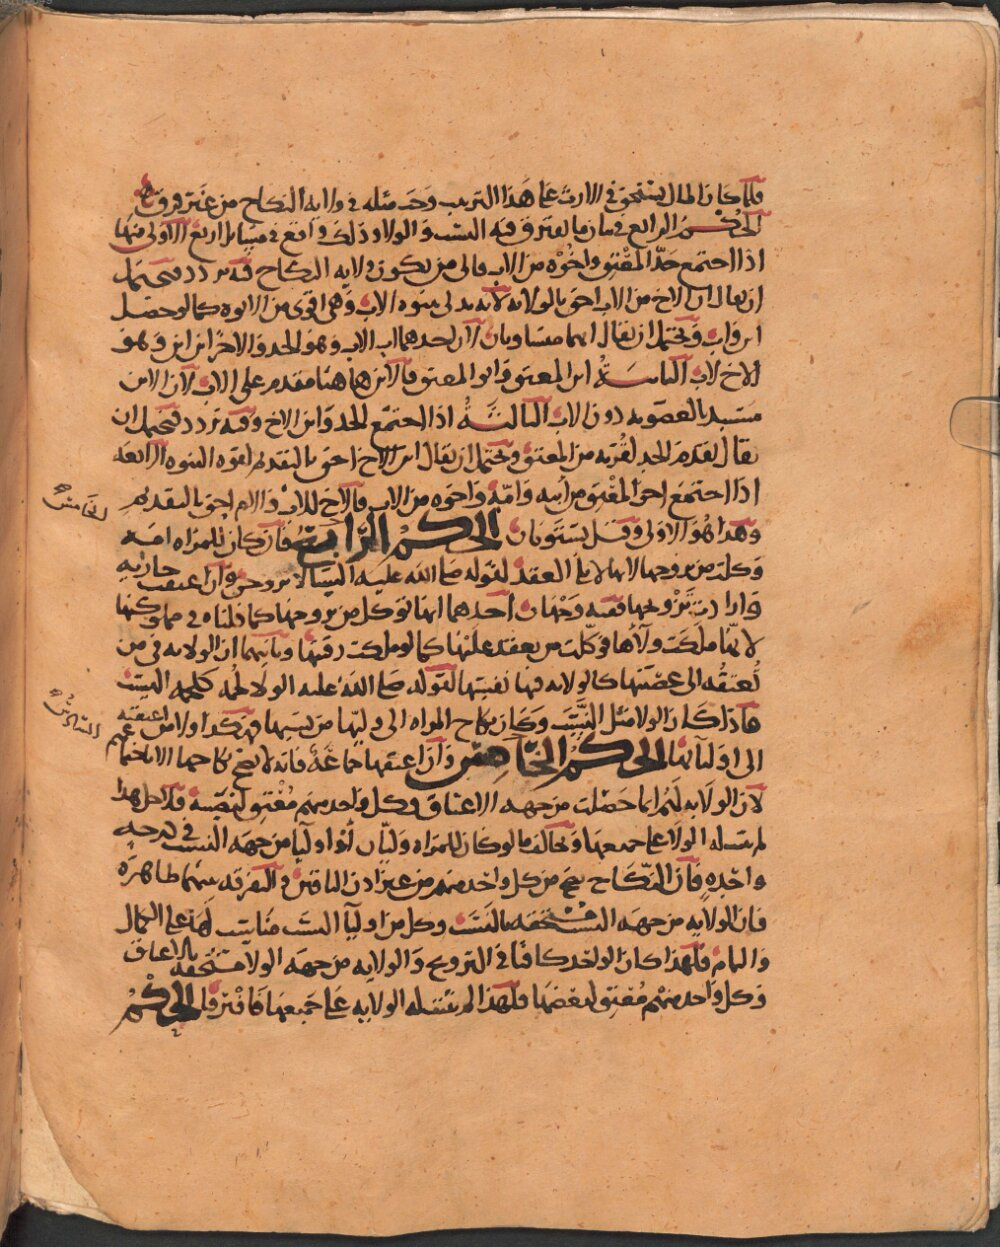 فلما كان المال يستحق في الارث على هذا الترتيب وجب مثله في ولاية النكاح من غير فرق
الحكم الرابع في بيان ما يفترق فيه النسب والولا وذلك واقع في مسايل اربع الاولى منها
اذا اجتمع جد المعتق واخوه من الاب فالى من يكون ولايه النكاح فيه تردد فيحتمل
ان يقال ان الاخ من الاب احق بالولايه لانه يدلي ببنوه الاب وهي اقوى من الابوه كما لو حصل
ابن واب ويحتمل ان يقال انهما متساويان لان احدهما اب الاب وهو الجد والاخر ابن ابن وهو
الاخ لاب الثانيه ابن المعتق وابو المعتق فالابن هاهنا مقدم على الاب لان الابن
مستبد بالعصوبه دون الاب الثالثة اذا اجتمع الجد وابن الاخ وفيه تردد فيحتمل ان
يقال يقدم الجد لقربه من المعتق ويحتمل ان يقال ابن الاخ احق بالتقديم لقوه البنوه الرابعه
اذا اجتمع اخو المعتق من ابيه وامه واخوه من الاب فالاخ للاب والام احق بالتقديم
وهذا هو الاولى وقيل يستويان الحكم الرابع فان كان للمراه امه
وكلت من يزوجها لانها لا تلي العقد لقوله صلى الله عليه وان اعتقت جاريه
وارادت تزويجها ففيه وجهان احدهما انها توكل من يزوجها كما قلناه في مملوكتها
لانها ملكت ولآها فوكلت من يعقد عليها كما لو ملكت رقبتها وثانيهما ان الولايه في من
تُعتقه الى عصبتها كالولايه فيها نفسها لقوله صلى الله عليه الولا لحمه كلحمه النسب
فاذا كان الولا مثل النسب وكان نكاح المراه الى وليها من نسبها فهكذا ولا من اعتقته
الى اوليائها الحكم الخامس وان اعتقها جماعة فانه لا يصح نكاحها الا باجتماعهم
لان الولايه لهم انما حصلت من جهه الاعتاق وكل واحد منهم معتق لنصيبه فلاجل هذا
لم يتسله الولا على جميعها ويخالف ما لو كان للمراه وليان او اوليا من جهه النسب في درجه
واحده فان النكاح يصح من كل واحد منهم من غير اذن الباقين والتفرقه بينهما ظاهرة
فان الولايه من جهه النسب مستحقه بالنسب وكل من اوليا النسب مناسب لها على الكمال
والتمام فلهذا كان الواحد كافيا في التزويج والولايه من جهه الولا مستحقه بالاعتاق
وكل واحد منهم معتق لبعضها فلهذا لم يتسله الولايه على جميعها فافترقا الحكم
الخامس
السادس